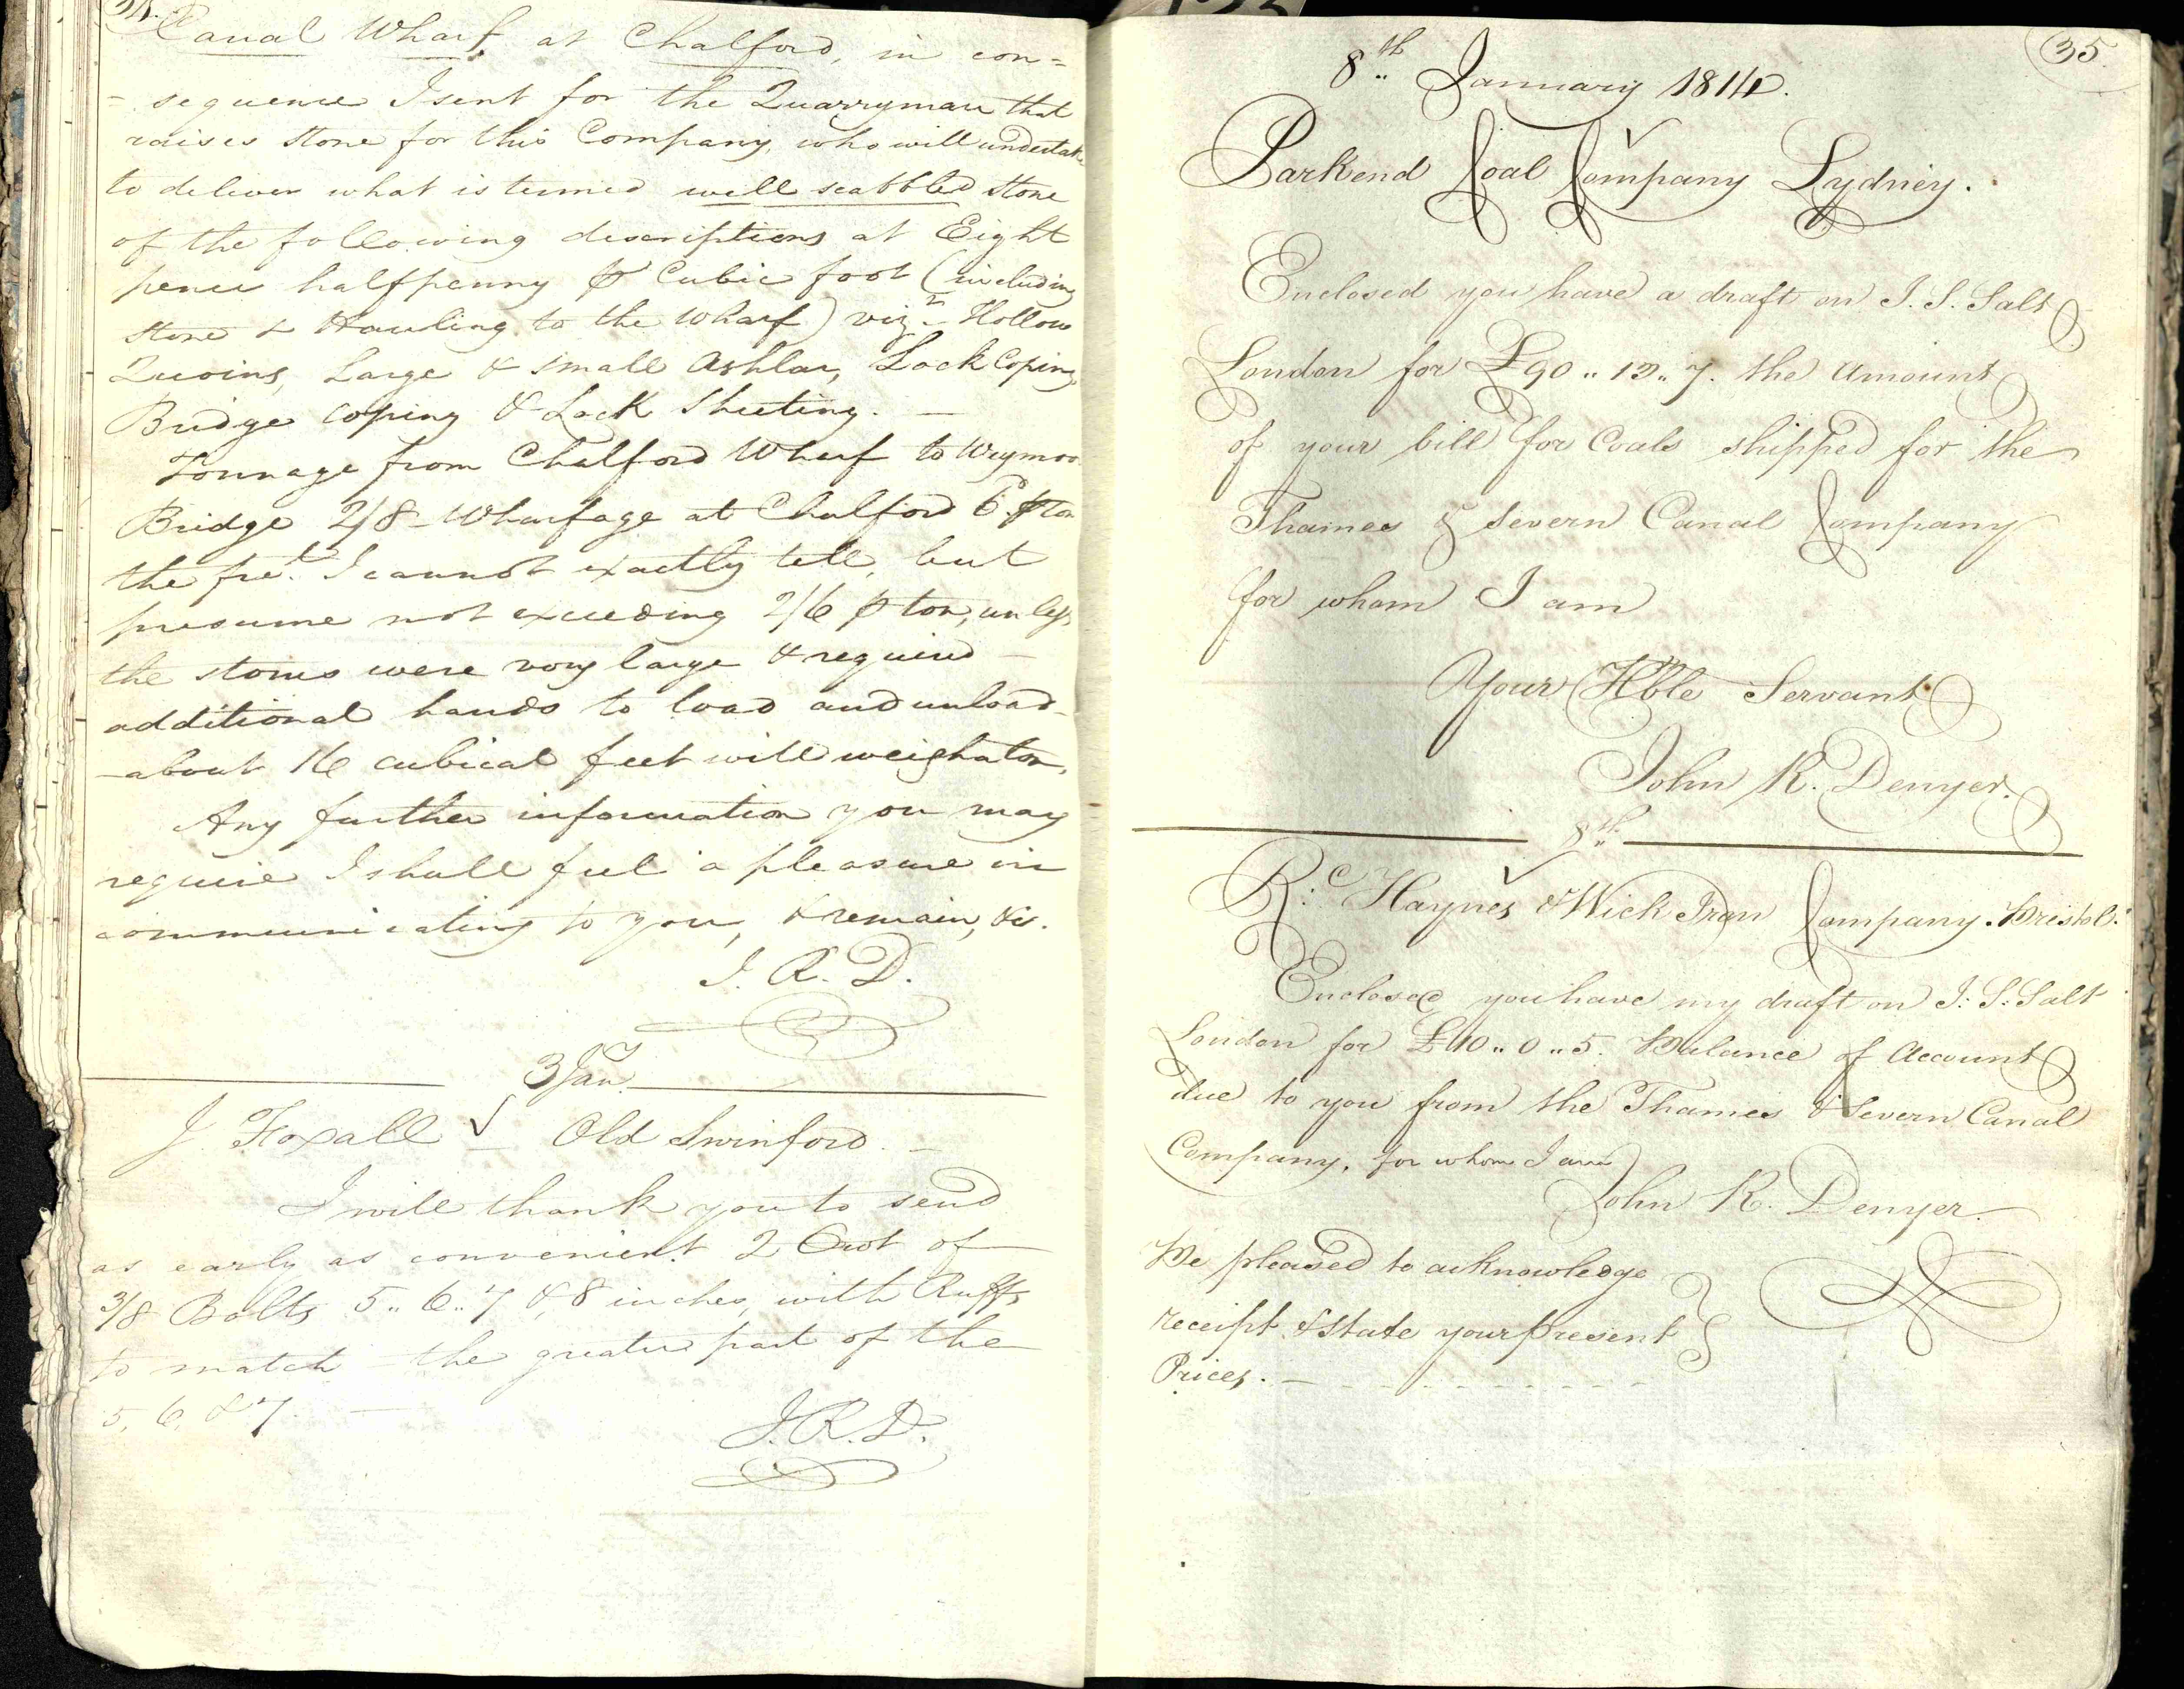 34.
Canal Wharf at Chalford, in con=
=sequence I sent for the Quarryman that
raises Stone for this Company, who will undertake
to deliver what is termed well scabbled Stone
of the following descriptions at Eight
pence halfpenny ⅌ Cubic foot (including
Stone & Hauling to the Wharf) viz.t Hollow
Quoins, Large & small Ashlar, Lock Coping,
Bridge Coping & Lock Sheeting. —
Tonnage from Chalford Wharf to Weymoor
Bridge 2/8 - Wharfage at Chalford 6.d ⅌ ton
the fre.t I cannot exactly tell, but
presume not exceeding 2/6 ⅌ ton, unless
the stones were very large & required —
additional hands to load and unload —
—about 16 cubical feet will weigh a ton.
Any further information you may
require I shall feel a pleasure in
communicating to you, & remain, &c.
J. R. D.
3 Jan.y
J. Foxall ✓ — Old Swinford. —
I will thank you to send
as early as convenient 2 Cwt of
3/8 Bolts 5.. 6.. 7 & 8 inches, with Ruffs
to match — the greater part of the
5, 6, & 7. —
J. R. D.
35.
8.th January 1814.
Parkend Coal Company Lydney.
Enclosed you have a draft on J. S. Salt
London for £90.. 13.. 7. the Amount
of your bill for Coals shipped for the
Thames & Severn Canal Company
for whom I am
Your Hble Servant
John R. Denyer.
8.th
R.c Haynes & Wick Iron Company. Bristol.
Enclosed you have my draft on J: S: Salt
London for £40.. 0.. 5. Balance of Account
due to you from the Thames & Severn Canal
Company, for whom I am
John R. Denyer.
Be pleased to acknowledge
receipt & State your present
Prices. —